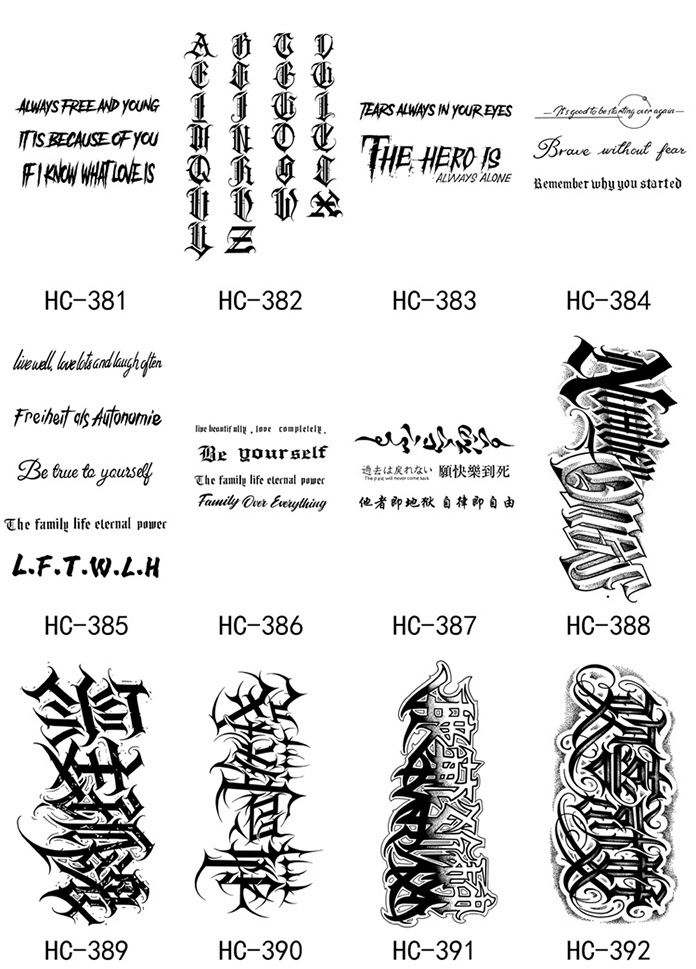 ALWAYS FREE AND YOUNG
IT IS BECAUSE OF YOU
IF I KNOW WHAT LOVE IS
HC-381
A B C D
E F G H
I J K L
M N O P
Q R S T
U V W X
Y Z
HC-382
TEARS ALWAYS IN YOUR EYES
THE HERO IS
ALWAYS ALONE
HC-383
It's good to be starting over again
Brave without fear
Remember why you started
HC-384
live well, love lots and laugh often
Freiheit als Autonomie
Be true to yourself
The family life eternal power
L.F.T.W.L.H
HC-385
live beautifully, love completely.
Be yourself
The family life eternal power
Family Over Everything
HC-386
過去は戻れない 願快樂到死
The pase will never come back
他者即地獄 自律即自由
HC-387
Number
HC-388
HC-389
HC-390
HC-391
HC-392